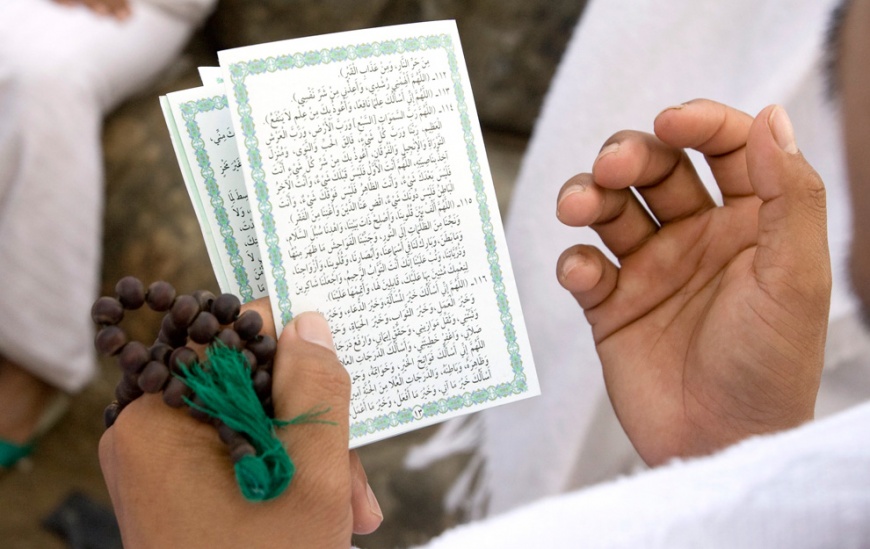 مِنْ حَرِّ النَّارِ، وَمِنْ عَذَابِ الْقَبْرِ).
١١٢ـ (اللَّهُمَّ أَلْهِمْنِي رُشْدِي، وَأَعِذْنِي مِنْ شَرِّ نَفْسِي).
١١٣ـ (اللَّهُمَّ إِنِّي أَسْأَلُكَ عِلْمًا نَافِعًا، وَأَعُوذُ بِكَ مِنْ عِلْمٍ لَا يَنْفَعُ).
١١٤ـ (اللَّهُمَّ رَبَّ السَّمَوَاتِ [السَّبْعِ] وَرَبَّ الْأَرْضِ، وَرَبَّ الْعَرْشِ
الْعَظِيمِ، رَبَّنَا وَرَبَّ كُلِّ شَيْءٍ، فَالِقَ الْحَبِّ وَالنَّوَى، وَمُنْزِلَ
التَّوْرَاةِ وَالْإِنْجِيلِ وَالْفُرْقَانِ، أَعُوذُ بِكَ مِنْ شَرِّ كُلِّ شَيْءٍ أَنْتَ
آخِذٌ بِنَاصِيَتِهِ، اللَّهُمَّ أَنْتَ الْأَوَّلُ فَلَيْسَ قَبْلَكَ شَيْءٌ، وَأَنْتَ الْآخِرُ
فَلَيْسَ بَعْدَكَ شَيْءٌ، وَأَنْتَ الظَّاهِرُ فَلَيْسَ فَوْقَكَ شَيْءٌ، وَأَنْتَ
الْبَاطِنُ فَلَيْسَ دُونَكَ شَيْءٌ، اقْضِ عَنَّا الدَّيْنَ وَأَغْنِنَا مِنَ الْفَقْرِ).
١١٥ـ (اللَّهُمَّ أَلِّفْ بَيْنَ قُلُوبِنَا، وَأَصْلِحْ ذَاتَ بَيْنِنَا، وَاهْدِنَا سُبُلَ السَّلَامِ،
وَنَجِّنَا مِنَ الظُّلُمَاتِ إِلَى النُّورِ، وَجَنِّبْنَا الْفَوَاحِشَ مَا ظَهَرَ مِنْهَا
وَمَا بَطَنَ، وَبَارِكْ لَنَا فِي أَسْمَاعِنَا، وَأَبْصَارِنَا، وَقُلُوبِنَا، وَأَزْوَاجِنَا،
وَذُرِّيَّاتِنَا، وَتُبْ عَلَيْنَا إِنَّكَ أَنْتَ التَّوَّابُ الرَّحِيمُ، وَاجْعَلْنَا شَاكِرِينَ
لِنِعَمِكَ مُثْنِينَ بِهَا عَلَيْكَ، قَابِلِينَ لَهَا، وَأَتْمِمْهَا عَلَيْنَا).
١١٦ـ (اللَّهُمَّ إِنِّي أَسْأَلُكَ خَيْرَ الْمَسْأَلَةِ، وَخَيْرَ الدُّعَاءِ، وَخَيْرَ
وَخَيْرَ الْعَمَلِ، وَخَيْرَ الثَّوَابِ، وَخَيْرَ الْحَيَاةِ، وَخَيْرَ
وَثَبِّتْنِي، وَثَقِّلْ مَوَازِينِي، وَحَقِّقْ إِيمَانِي، وَارْفَعْ دَرَجَ
صَلَاتِي، وَاغْفِرْ خَطِيئَتِي، وَأَسْأَلُكَ الدَّرَجَاتِ الْعُلَا
اللَّهُمَّ إِنِّي أَسْأَلُكَ فَوَاتِحَ الْخَيْرِ، وَخَوَاتِمَهُ، وَجَوَ
وَظَاهِرَهُ، وَبَاطِنَهُ، وَالدَّرَجَاتِ الْعُلَا مِنَ الْجَنَّةِ
أَسْأَلُكَ خَيْرَ مَا آتِي، وَخَيْرَ مَا أَفْعَلُ، وَخَيْرَ مَا أَعْمَلُ،
١٣